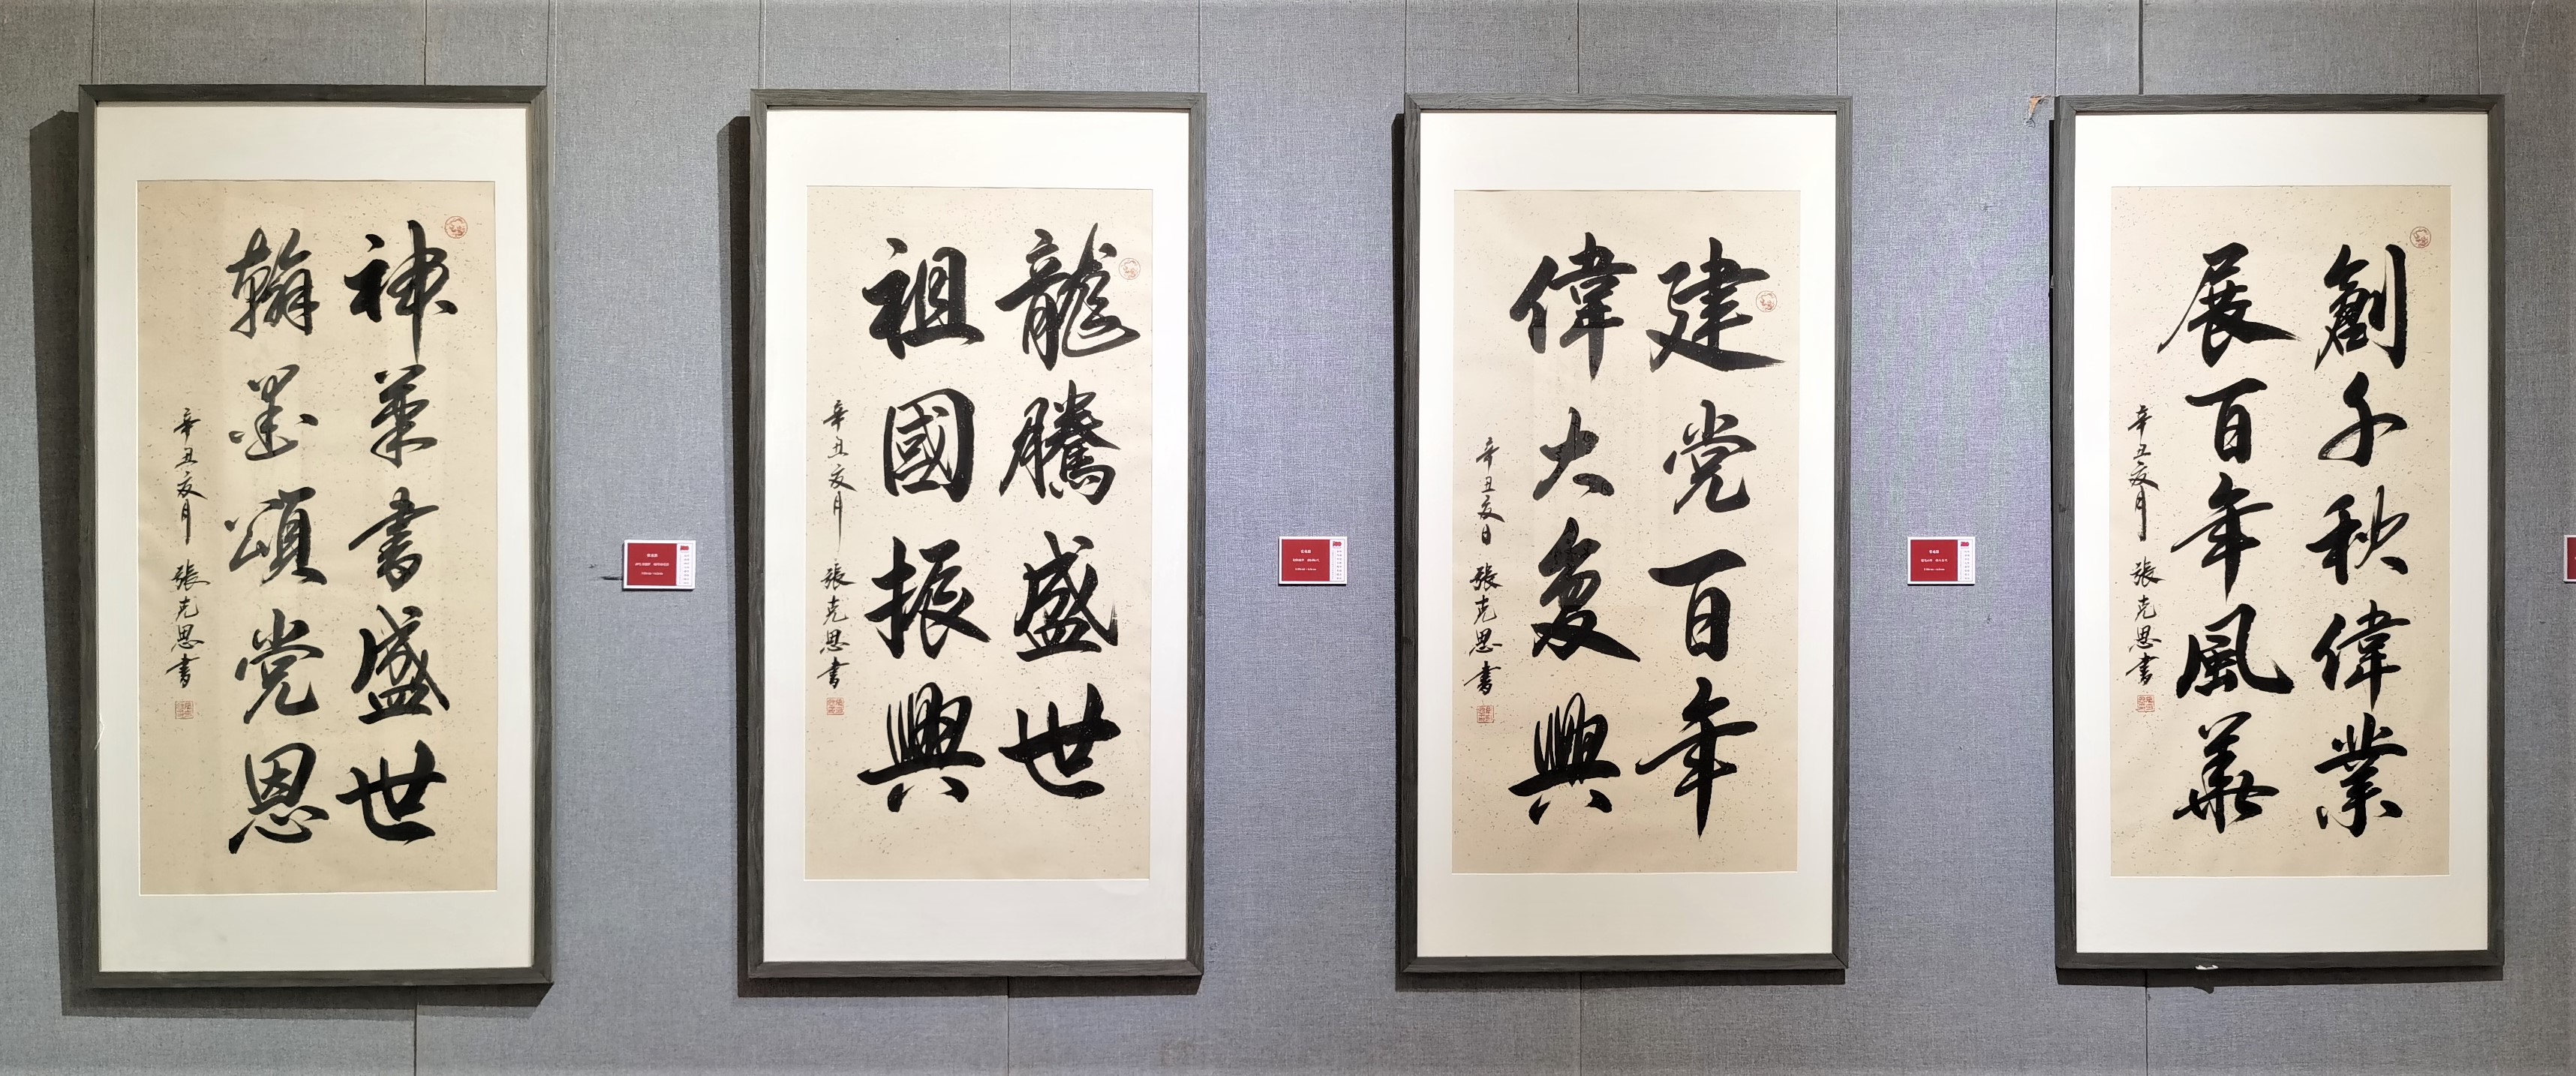 神筆書盛世
翰墨頌党恩
辛丑亥月 張克思書
龍騰盛世
祖國振興
辛丑亥月 張克思書
建党百年
偉大复興
辛丑亥月 張克思書
創千秋偉業
展百年風華
辛丑亥月 張克思書